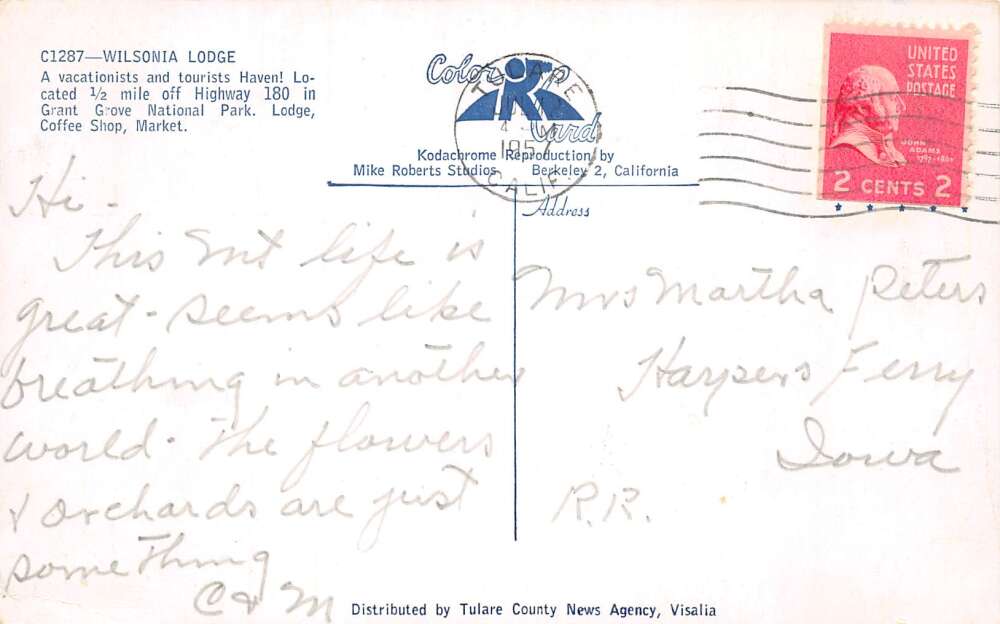 C1287—WILSONIA LODGE
A vacationists and tourists Haven! Lo-
cated 1/2 mile off Highway 180 in
Grant Grove National Park. Lodge,
Coffee Shop, Market.
Color Card
Kodachrome Reproduction by
Mike Roberts Studios Berkeley 2, California
TULARE
1957
CALIF.
UNITED
STATES
POSTAGE
JOHN
ADAMS
1797-1801
2 CENTS 2
Address
Hi -
This Mt life is
great - seems like
breathing in another
world - The flowers
& orchards are just
something
C & M
Mrs Martha Peters
Harpers Ferry
Iowa
R.R.
Distributed by Tulare County News Agency, Visalia